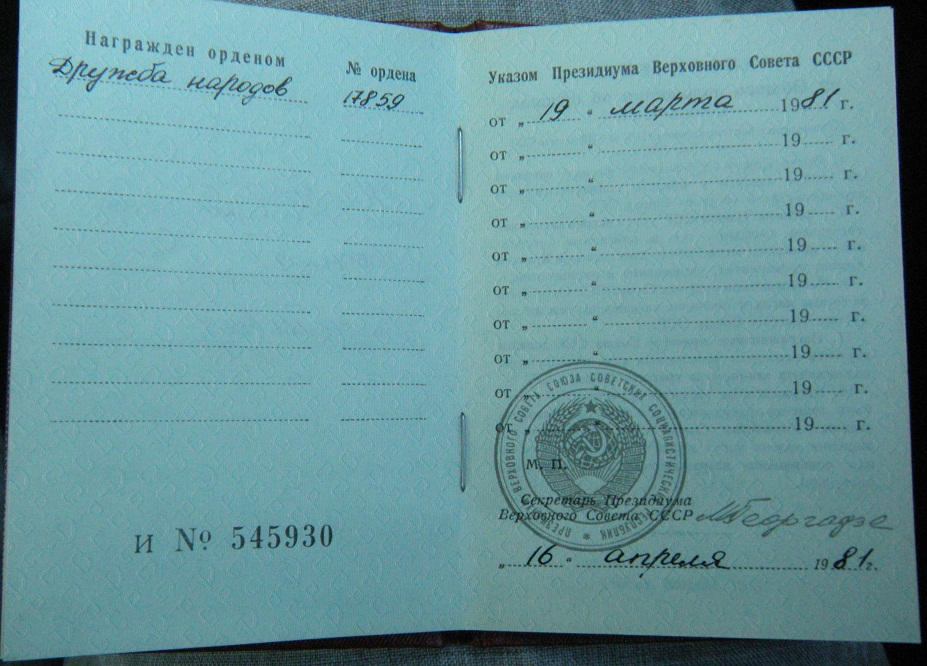 Награжден орденом
№ ордена
Дружба народов
17859
И № 545930
Указом Президиума Верховного Совета СССР
от „ 19 “ марта 1981 г.
от „ “ 19 г.
от „ “ 19 г.
от „ “ 19 г.
от „ “ 19 г.
от „ “ 19 г.
от „ “ 19 г.
от „ “ 19 г.
от „ “ 19 г.
от „ “ 19 г.
ПРЕЗИДИУМ ВЕРХОВНОГО СОВЕТА СОЮЗА СОВЕТСКИХ СОЦИАЛИСТИЧЕСКИХ РЕСПУБЛИК
М. П.
Секретарь Президиума
Верховного Совета СССР МГеоргадзе
„ 16 “ апреля 1981 г.